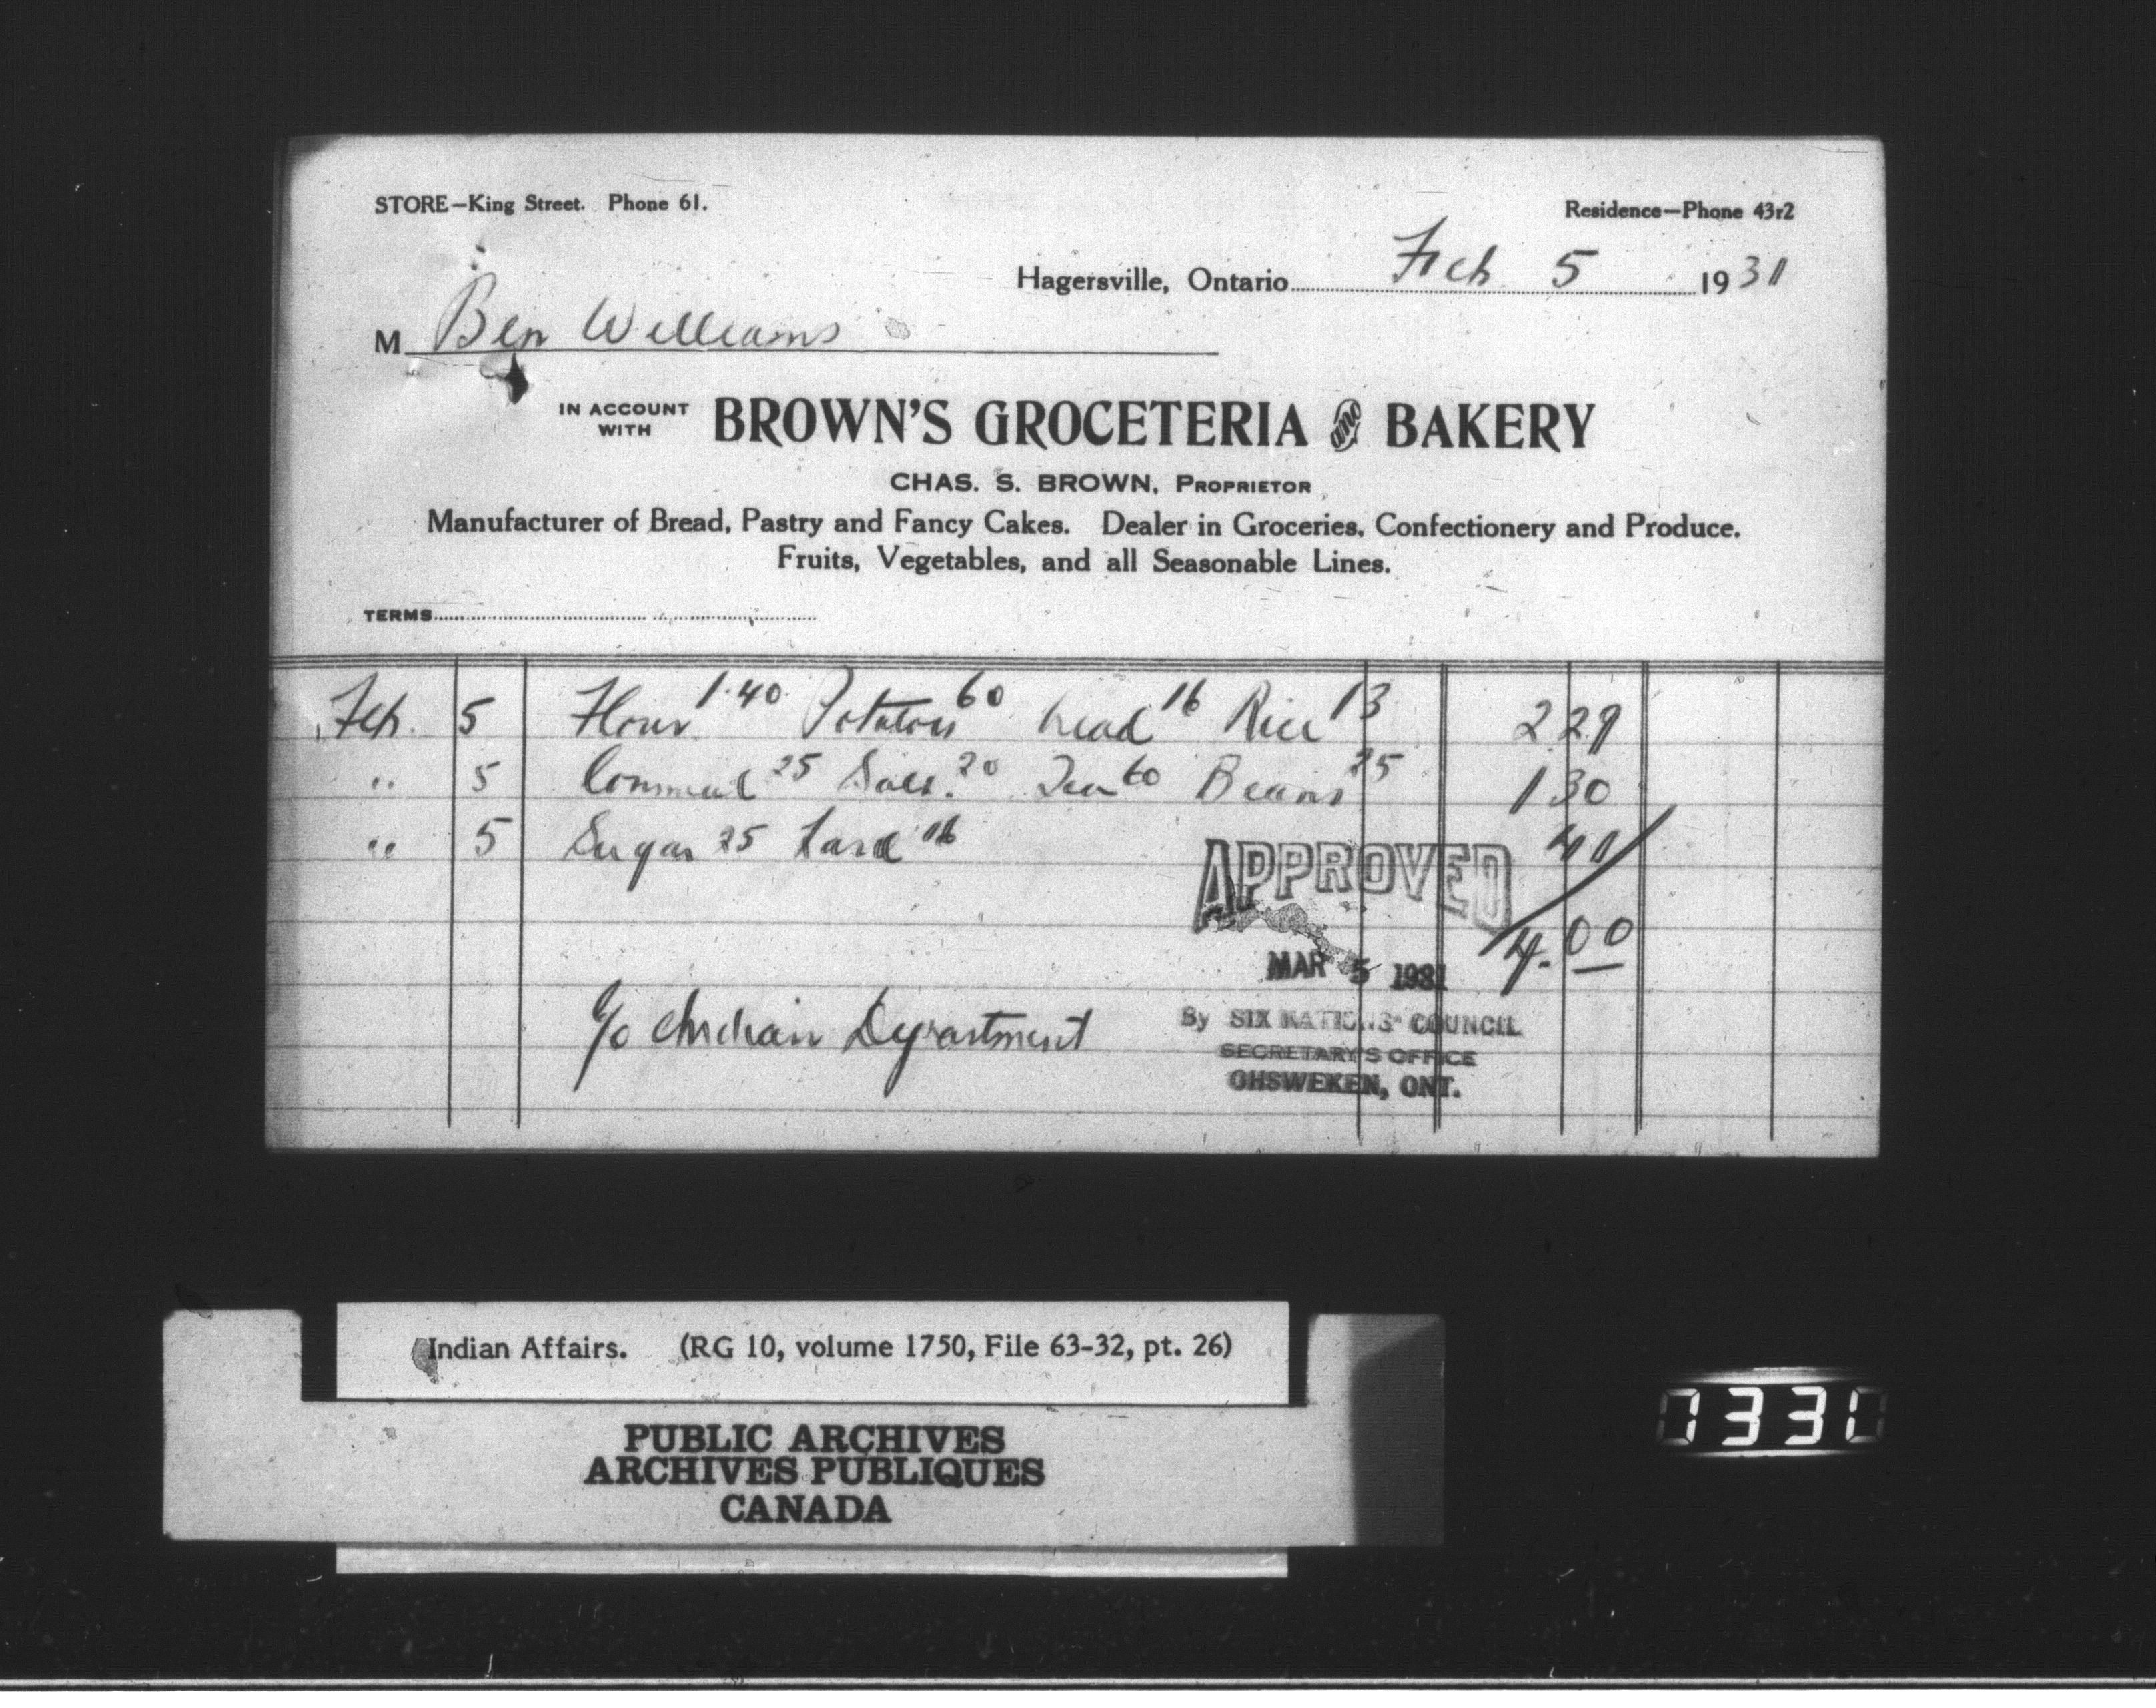 STORE—King Street. Phone 61.
Residence—Phone 43r2
Hagersville, Ontario Feb 5 1931
M Ben Williams
IN ACCOUNT WITH BROWN'S GROCETERIA AND BAKERY
CHAS. S. BROWN, PROPRIETOR
Manufacturer of Bread, Pastry and Fancy Cakes. Dealer in Groceries, Confectionery and Produce.
Fruits, Vegetables, and all Seasonable Lines.
TERMS
Feb. 5 Flour 1.40 Potatoes 60 16 Rice 13 2 29
" 5 Cornmeal 25 20 Tea 60 Beans 25 1 30
" 5 Sugar 25 Lard 16 41
APPROVED
4.00
MAR 5 1931
c/o Indian Department
By SIX NATIONS COUNCIL
SECRETARY'S OFFICE
OHSWEKEN, ONT.
Indian Affairs. (RG 10, volume 1750, File 63-32, pt. 26)
PUBLIC ARCHIVES
ARCHIVES PUBLIQUES
CANADA